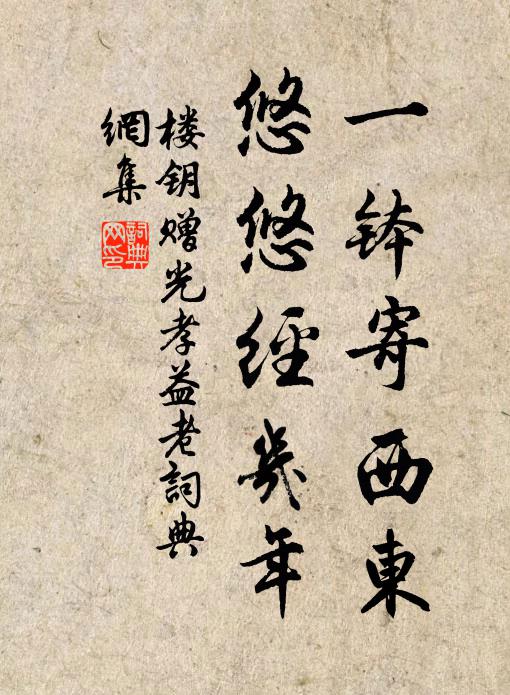 一鉢寄西東
悠悠經幾年
楼钥赠光孝益老詞典
網集
詞典
网印